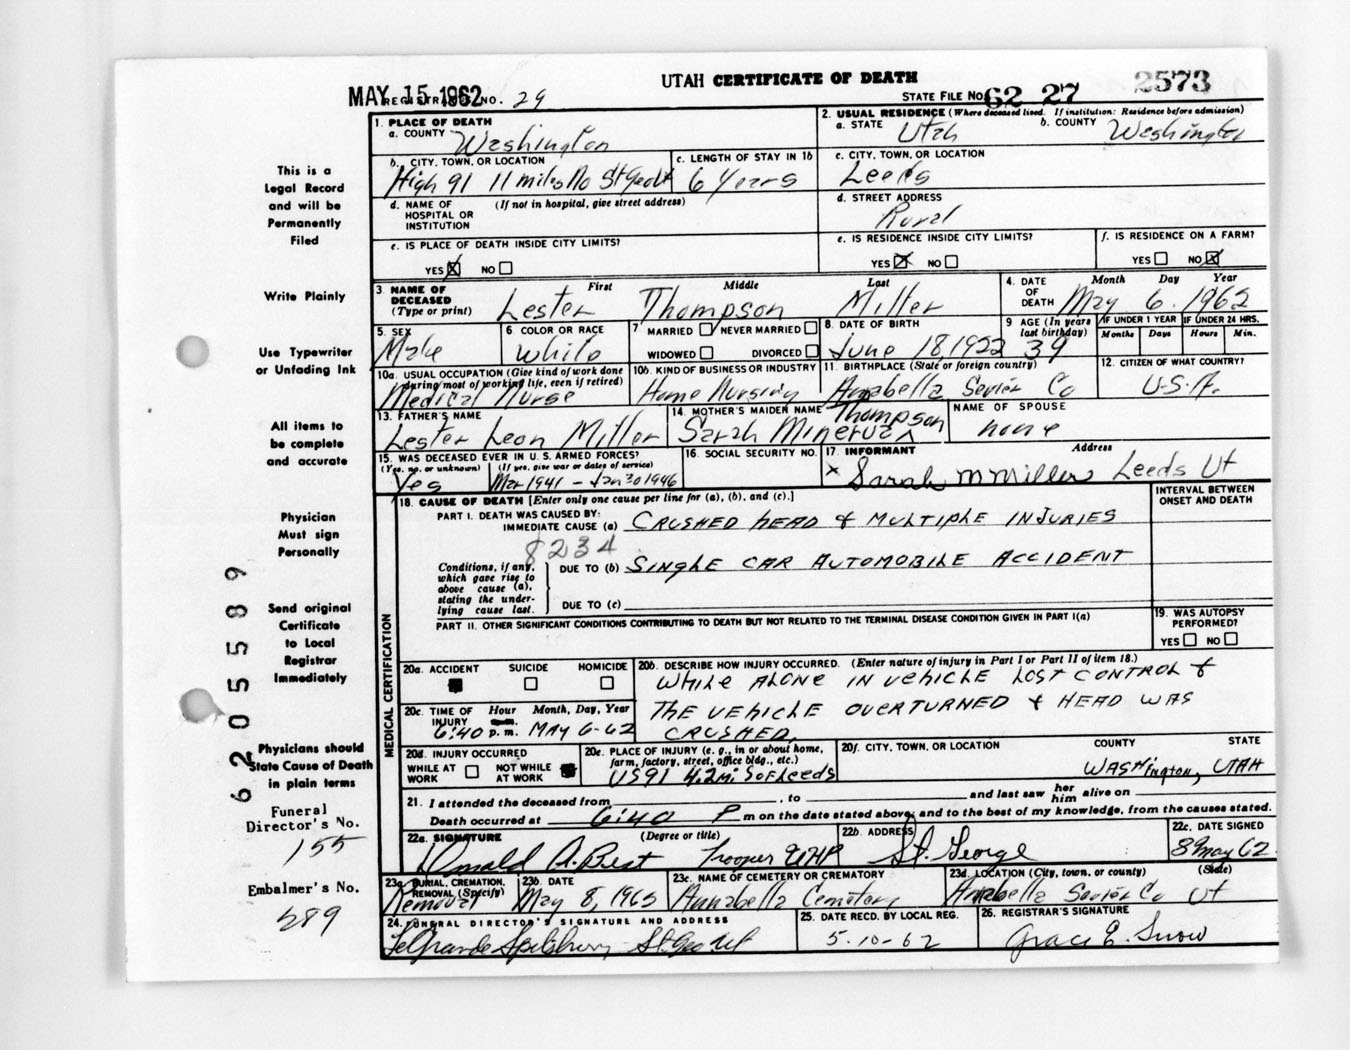 UTAH CERTIFICATE OF DEATH
2573
MAY 15 1962
REGISTRAR'S NO. 29
STATE FILE NO. 62 27
1. PLACE OF DEATH
a. COUNTY Washington
2. USUAL RESIDENCE (Where deceased lived. If institution: Residence before admission)
a. STATE Utah b. COUNTY Washington
b. CITY, TOWN, OR LOCATION
High 91 11 miles No St George
c. LENGTH OF STAY IN 1b
6 Years
c. CITY, TOWN, OR LOCATION
Leeds
d. NAME OF HOSPITAL OR INSTITUTION (If not in hospital, give street address)
d. STREET ADDRESS
Rural
e. IS PLACE OF DEATH INSIDE CITY LIMITS?
YES X NO
e. IS RESIDENCE INSIDE CITY LIMITS?
YES X NO
f. IS RESIDENCE ON A FARM?
YES NO X
3. NAME OF DECEASED (Type or print)
First Middle Last
Lester Thompson Miller
4. DATE OF DEATH Month Day Year
May 6. 1962
5. SEX
Male
6 COLOR OR RACE
White
7 MARRIED NEVER MARRIED
WIDOWED DIVORCED
8. DATE OF BIRTH
June 18, 1922
9 AGE (In years last birthday)
39
IF UNDER 1 YEAR IF UNDER 24 HRS.
Months Days Hours Min.
10a. USUAL OCCUPATION (Give kind of work done during most of working life, even if retired)
Medical Nurse
10b. KIND OF BUSINESS OR INDUSTRY
Home Nursing
11. BIRTHPLACE (State or foreign country)
Annabella Sevier Co
12. CITIZEN OF WHAT COUNTRY?
U.S.A.
13. FATHER'S NAME
Lester Leon Miller
14. MOTHER'S MAIDEN NAME
Sarah Minerva Thompson
NAME OF SPOUSE
none
15. WAS DECEASED EVER IN U. S. ARMED FORCES?
(Yes, no, or unknown) (If yes, give war or dates of service)
Yes Mar 1941 - Jan 30 1946
16. SOCIAL SECURITY NO.
17. INFORMANT Address
x Sarah M Miller Leeds Ut
18. CAUSE OF DEATH [Enter only one cause per line for (a), (b), and (c).]
INTERVAL BETWEEN ONSET AND DEATH
PART I. DEATH WAS CAUSED BY:
IMMEDIATE CAUSE (a) CRUSHED HEAD & MULTIPLE INJURIES
8234
Conditions, if any, which gave rise to above cause (a), stating the underlying cause last.
DUE TO (b) SINGLE CAR AUTOMOBILE ACCIDENT
DUE TO (c)
PART II. OTHER SIGNIFICANT CONDITIONS CONTRIBUTING TO DEATH BUT NOT RELATED TO THE TERMINAL DISEASE CONDITION GIVEN IN PART I(a)
19. WAS AUTOPSY PERFORMED?
YES NO
MEDICAL CERTIFICATION
20a. ACCIDENT SUICIDE HOMICIDE
20b. DESCRIBE HOW INJURY OCCURRED. (Enter nature of injury in Part I or Part II of item 18.)
WHILE ALONE IN VEHICLE LOST CONTROL &
THE VEHICLE OVERTURNED & HEAD WAS
CRUSHED.
20c. TIME OF INJURY Hour Month, Day, Year
6:40 p. m. MAY 6-62
20d. INJURY OCCURRED
WHILE AT WORK NOT WHILE AT WORK
20e. PLACE OF INJURY (e. g., in or about home, farm, factory, street, office bldg., etc.)
US 91 4.2 mi S of Leeds
20f. CITY, TOWN, OR LOCATION COUNTY STATE
WASHington, UTAH
21. I attended the deceased from , to and last saw her him alive on
Death occurred at 6:40 P m on the date stated above; and to the best of my knowledge, from the causes stated.
22a. SIGNATURE (Degree or title)
Donald A. Prest Trooper UHP
22b. ADDRESS
St. George
22c. DATE SIGNED
8 May 62
23a. BURIAL, CREMATION, REMOVAL (Specify)
Removal
23b. DATE
May 8, 1962
23c. NAME OF CEMETERY OR CREMATORY
Annabella Cemetery
23d. LOCATION (City, town, or county) (State)
Annabella Sevier Co Ut
24. FUNERAL DIRECTOR'S SIGNATURE AND ADDRESS
LeGrande Spilsbury St. Geo Ut
25. DATE RECD. BY LOCAL REG.
5-10-62
26. REGISTRAR'S SIGNATURE
Grace E. Snow
This is a
Legal Record
and will be
Permanently
Filed
Write Plainly
Use Typewriter
or Unfading Ink
All items to
be complete
and accurate
Physician
Must sign
Personally
Send original
Certificate
to Local
Registrar
Immediately
Physicians should
State Cause of Death
in plain terms
Funeral
Director's No.
155
Embalmer's No.
289
62 05589